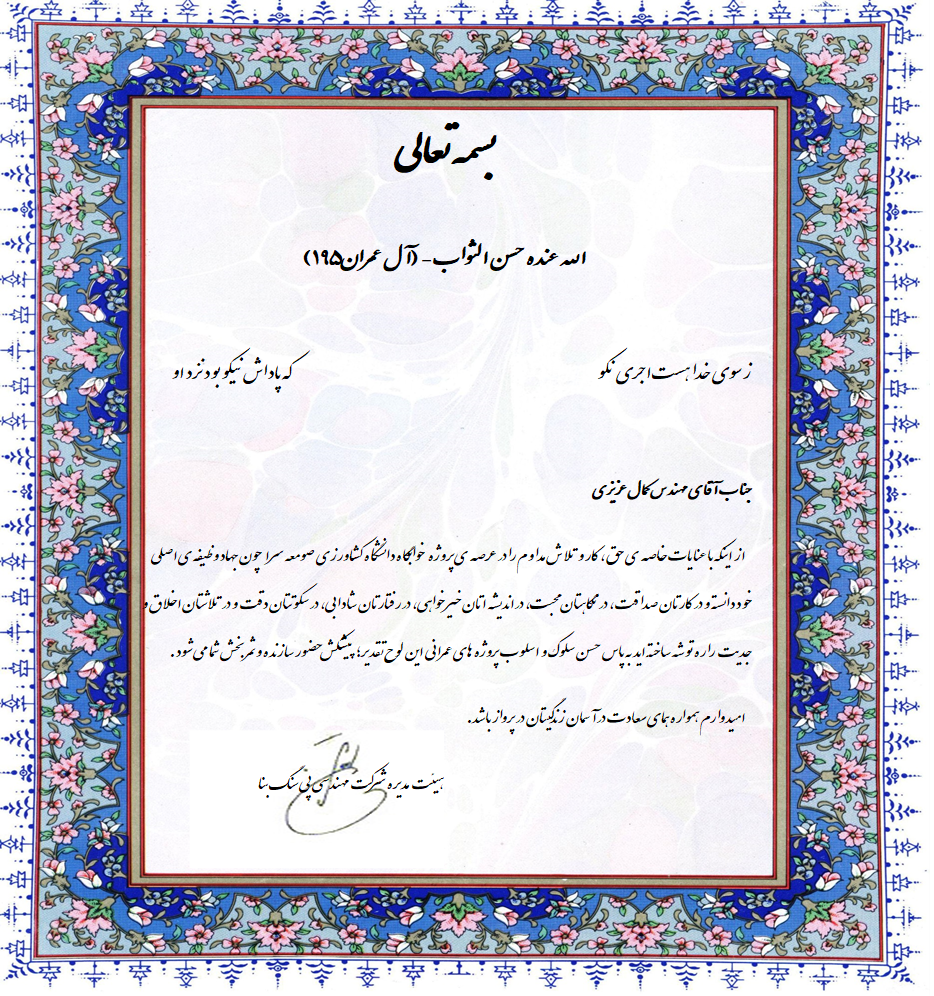 بسمه تعالی
الله عنده حسن الثواب - (آل عمران ۱۹۵)
ز سوی خدا هست اجری نکو که پاداش نیکو بود نزد او
جناب آقای مهندس کمال عزیزی
از اینکه با عنایات خاصه ی حق، کار و تلاش مداوم را در عرصه ی پروژه خوابگاه دانشگاه کشاورزی صومعه سرا چون جهاد وظیفه ی اصلی
خود دانسته و در کارتان صداقت، در نگاهتان محبت، در اندیشه اتان خیرخواهی، در رفتارتان شادابی، در سکوتتان دقت و در تلاشتان اخلاق و
جدیت را ره توشه ساخته اید به پاس حسن سلوک و اسلوب پروژه های عمرانی این لوح تقدیر؛ پیشکش حضور سازنده و ثمربخش شما می شود.
امیدوارم همواره همای سعادت در آسمان زندگیتان در پرواز باشد.
هیئت مدیره شرکت مهندسی پی سنگ بنا